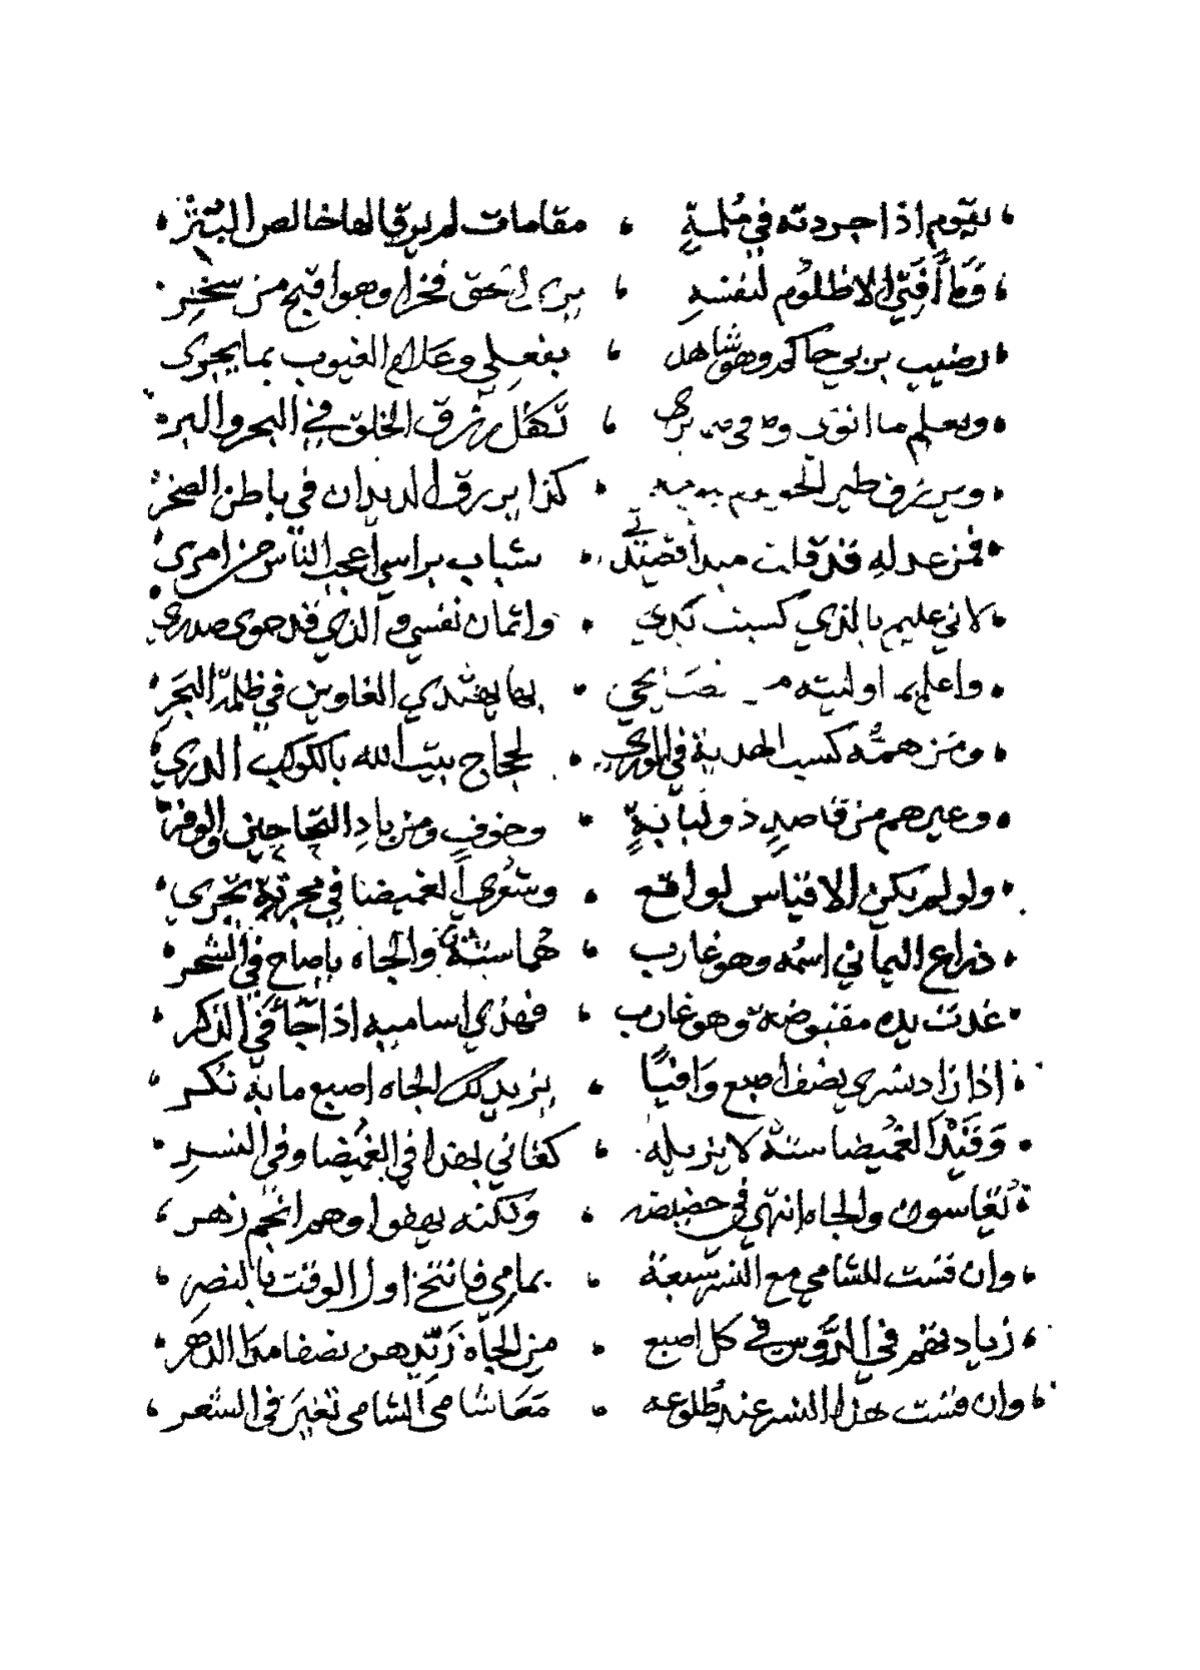 يقوم اذا جردته في مُلمةٍ ، مقامات لم يرقا لها خالص التبر
فما آفتي الا ظلوم لنفسهِ ، يرى الحق فخرا وهو اقبح من سخر
رضيت بربي حاكم وهو شاهد ، بفعلي وعلام الغيوب بما يجرى
ويعلم ما انوى ، تكفل برزق الخلق في البحر والبر
طير ، كذا يرزق الديدان في باطن الصخر
فمن عدله قد قلت مبدأ قصيدتي ، شباب براسي أعجب الناس من امرى
لاني عليم بالذي كسبت يدي ، وائمان نفسي والذي قد حوى صدري
واعلم بما اوليته من نصايحي ، بها يهتدي الغاوين في ظلمة البحر
ومن همه كسب الهدية في الورى ، لحجاج بيت الله بالكوكب الدري
وغيرهم من قاصدٍ ذو لبانةٍ ، وخوفٍ ومن باد التجا حين والوفر
ولو لم يكن الا قياس لواقع ، وشعرى الغميضا في مجرته تجري
ذراع اليماني اسمه وهو غارب ، هما ستة والجاه يا صاح في الشعر
غدت يده مقبوضة وهو غارب ، فهذي اساميه اذا جا في الذكر
اذا زاد شرى نصف اصبع وافيًا ، يزيد لك الجاه اصبع ما به نكر
وقيد الغميضا ستة لا يزيله ، كفاني بهذا في الغميضا وفي النسر
تقاسون والجاه انتهى في حضيضه ، ولكنه يهفوا وهم انجم زهر
وان قست للشامي مع النسر سبعة ، بمامي فانتخ اول الوقت بالنصر
زيادتهم في الروس في كل اصبع ، من الجاه زيدهن نصفا مدا الدهر
وان قست هذا النسر عند طلوعه ، معا شامي الشامي تغير في الشعر